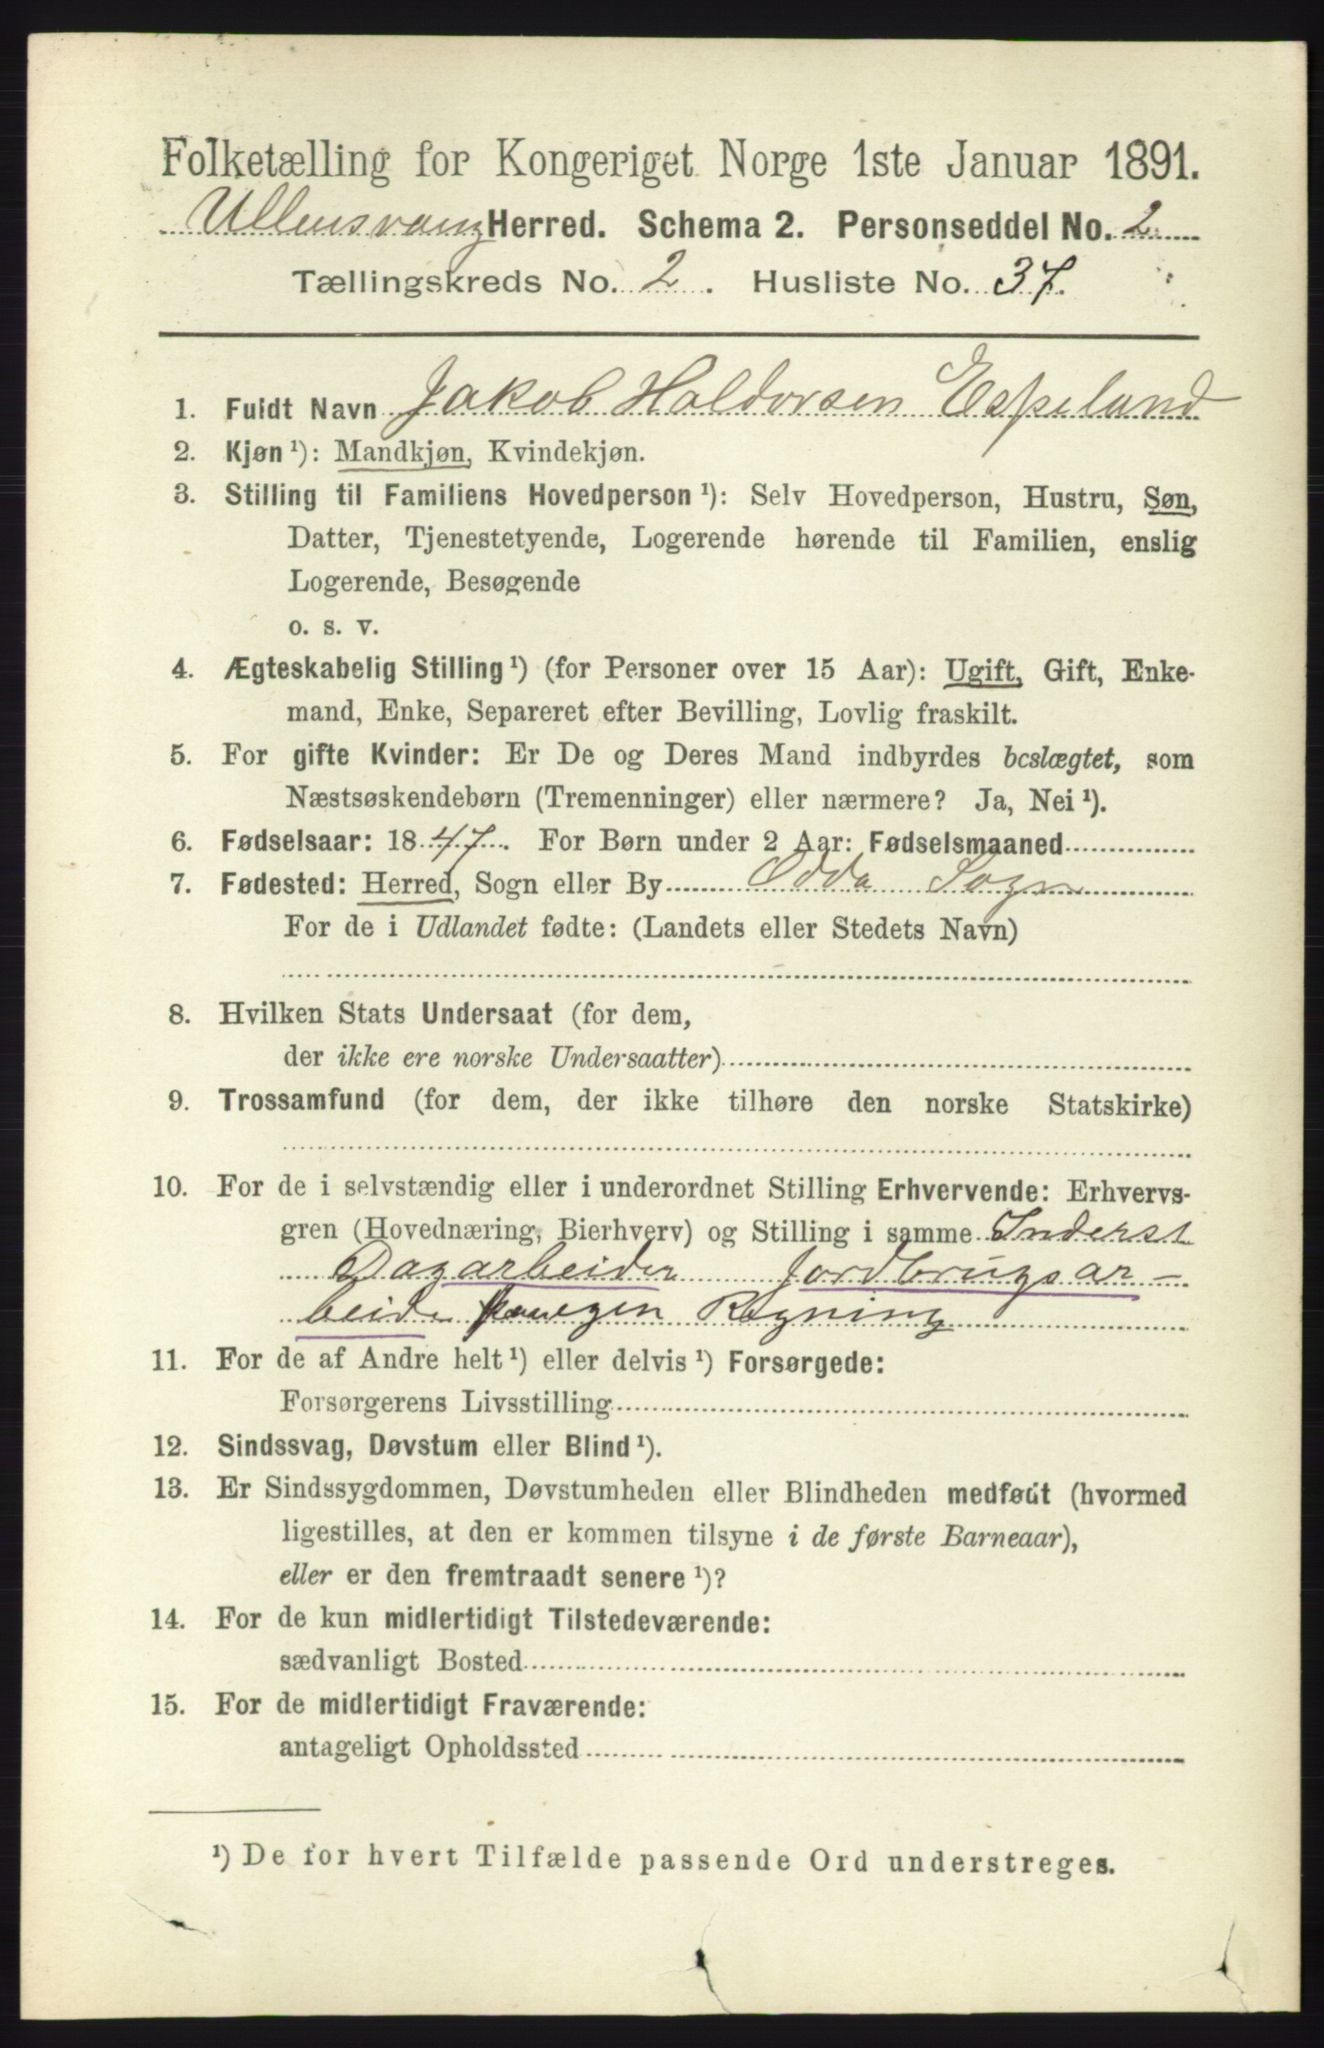 Folketælling for Kongeriget Norge 1ste Januar 1891.
Ullensvang Herred. Schema 2. Personseddel No. 2
Tællingskreds No. 2. Husliste No. 37.
1. Fuldt Navn Jakob Haldorsen Espeland
2. Kjøn ¹): Mandkjøn, Kvindekjøn.
3. Stilling til Familiens Hovedperson ¹): Selv Hovedperson, Hustru, Søn,
Datter, Tjenestetyende, Logerende hørende til Familien, enslig
Logerende, Besøgende
o. s. v.
4. Ægteskabelig Stilling ¹) (for Personer over 15 Aar): Ugift, Gift, Enke-
mand, Enke, Separeret efter Bevilling, Lovlig fraskilt.
5. For gifte Kvinder: Er De og Deres Mand indbyrdes beslægtet, som
Næstsøskendebørn (Tremenninger) eller nærmere? Ja, Nei ¹).
6. Fødselsaar: 1847. For Børn under 2 Aar: Fødselsmaaned
7. Fødested: Herred, Sogn eller By Odda Sogn
For de i Udlandet fødte: (Landets eller Stedets Navn)
8. Hvilken Stats Undersaat (for dem,
der ikke ere norske Undersaatter)
9. Trossamfund (for dem, der ikke tilhøre den norske Statskirke)
10. For de i selvstændig eller i underordnet Stilling Erhvervende: Erhvervs-
gren (Hovednæring, Bierhverv) og Stilling i samme Inderst
Dagarbeider Jordbrugsar-
beide egen Regning
11. For de af Andre helt ¹) eller delvis ¹) Forsørgede:
Forsørgerens Livsstilling
12. Sindssvag, Døvstum eller Blind ¹).
13. Er Sindssygdommen, Døvstumheden eller Blindheden medfødt (hvormed
ligestilles, at den er kommen tilsyne i de første Barneaar),
eller er den fremtraadt senere ¹)?
14. For de kun midlertidigt Tilstedeværende:
sædvanligt Bosted
15. For de midlertidigt Fraværende:
antageligt Opholdssted
¹) De for hvert Tilfælde passende Ord understreges.